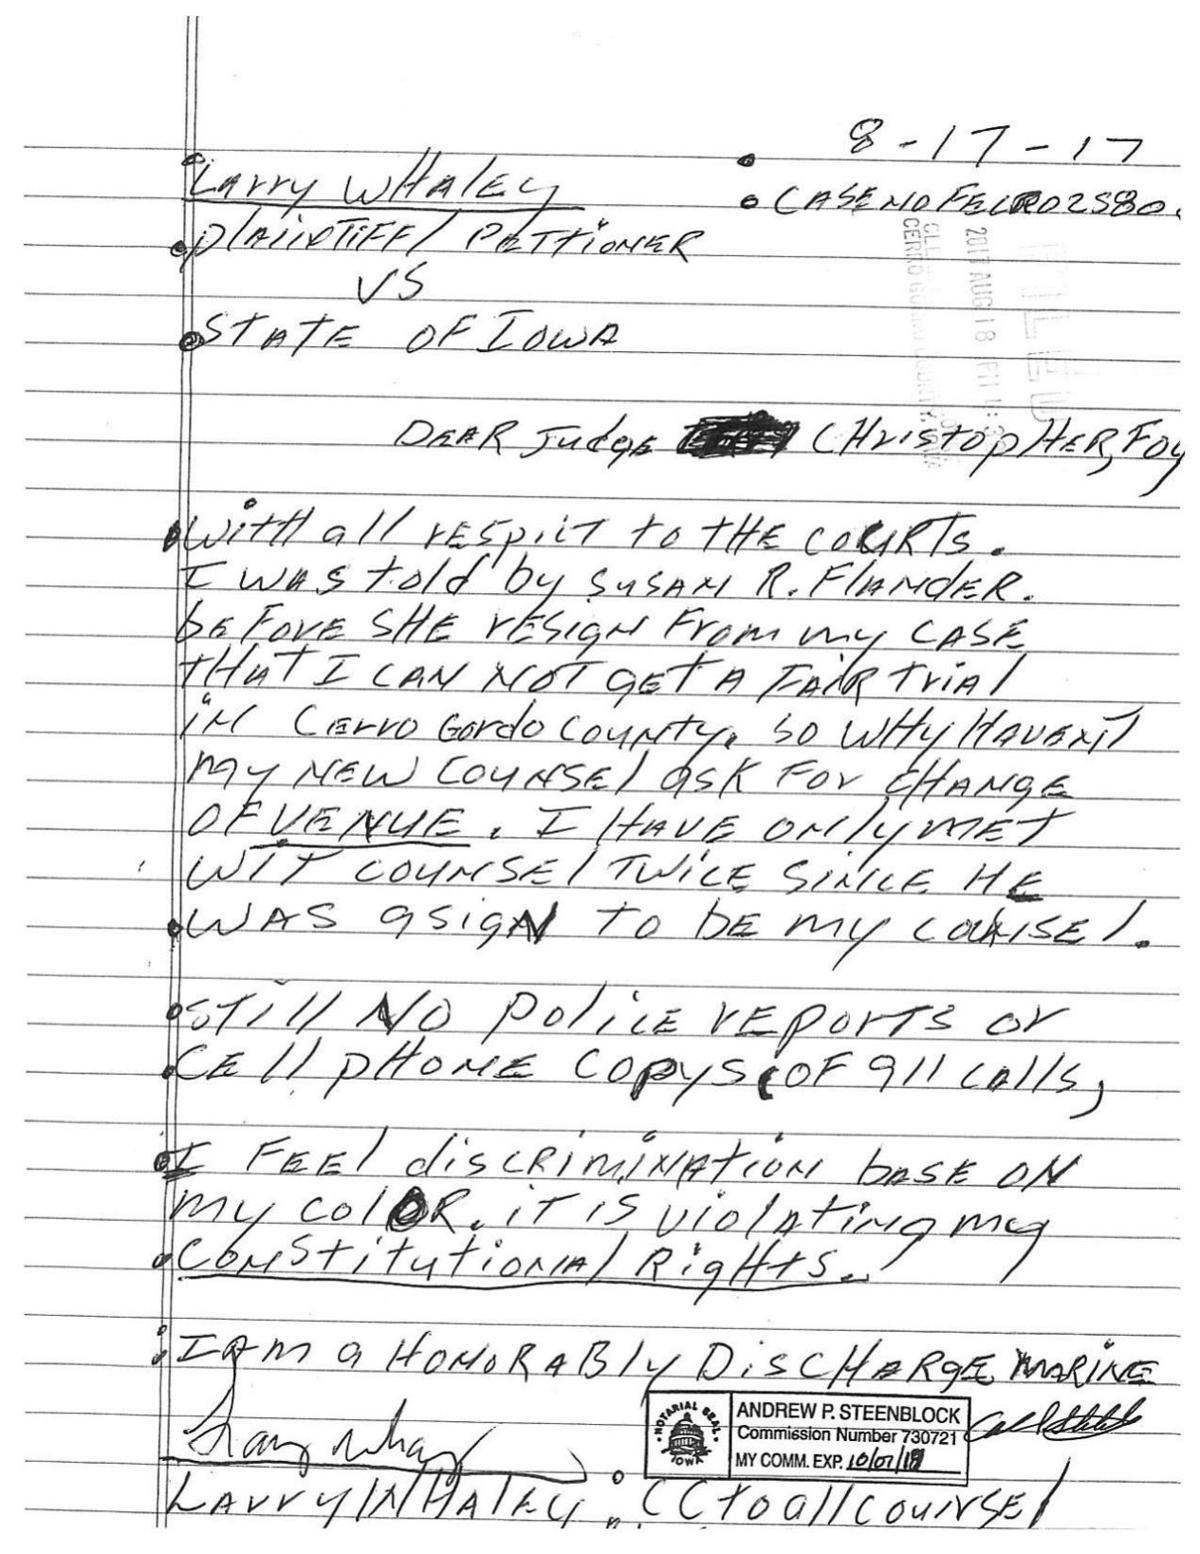 8-17-17
Larry WHALEY
CASE NO FECR02580.
PlAINTIFF/ PETTIONER
VS
STATE OF IOWA
FILED
2017 AUG 18 PM
CERRO GORDO COUNTY
DEAR Judge CHristopHER, Foy
With all respect to tHE coURTs.
I WAS told by SUSAN R. FlANDER.
beFore SHE resign From my CASE
tHAT I CAN NOT GET A FAIR Trial
iN Cerro Gordo County, so WHy HAVENT
my NEW COUNSEl ask For CHANGE
OF VENUE. I HAVE only MET
WIT COUNSEl TWICE SINCE HE
WAS asigN TO be my COUNSEl.
STill NO police reports or
CEll pHONE copys OF 911 calls,
I FEEl discRIMINATION base ON
my colOR. iT IS violating my
CONStitutional RigHts.
I Am a HONORABly DiSCHARgE MARINE
NOTARIAL SEAL
IOWA
ANDREW P. STEENBLOCK
Commission Number 730721
MY COMM. EXP. 10/07/18
Larry Whaley
LArry WHAlEy. CC to all COUNSEl